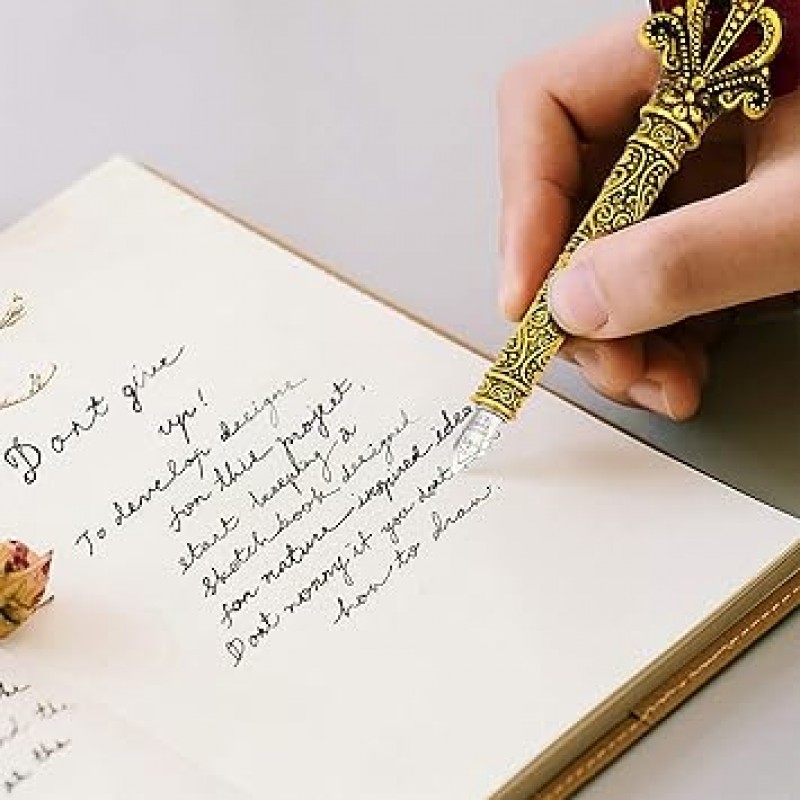 Dont give
up!
To develop designe
for this project,
start keeping a
sketchbook designd
for nature inspired idea
Dont norry it you dont
how to draw.
the
the
as the